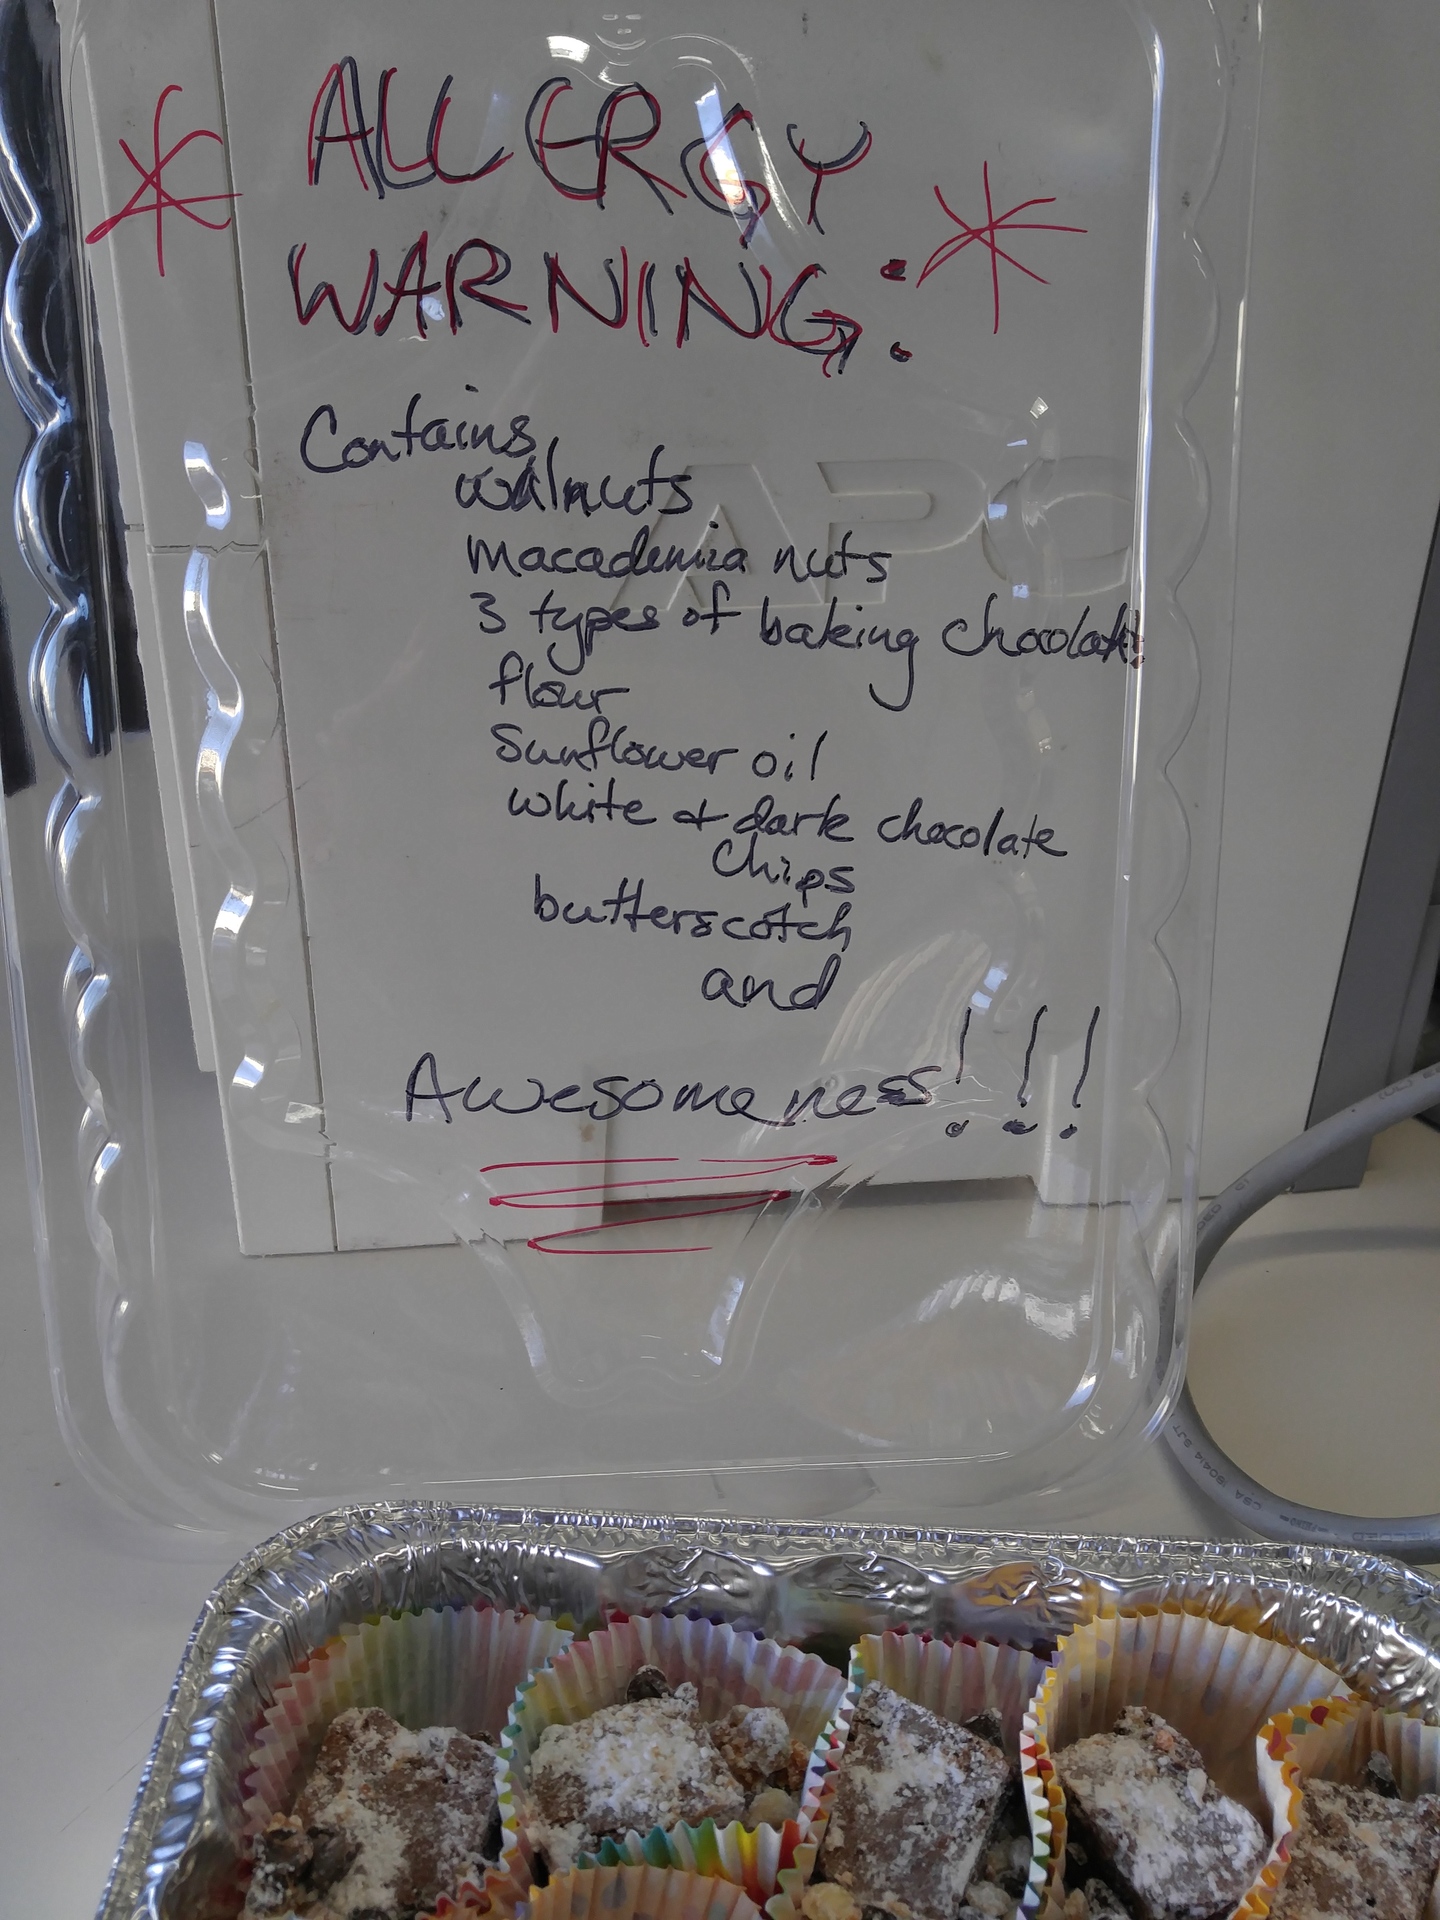 * ALLERGY
WARNING: *
Contains
walnuts
macademia nuts
3 types of baking chocolate
flour
Sunflower oil
white + dark chocolate
chips
butterscotch
and
Awesomeness!!!
APC
CSA 190414 SJT